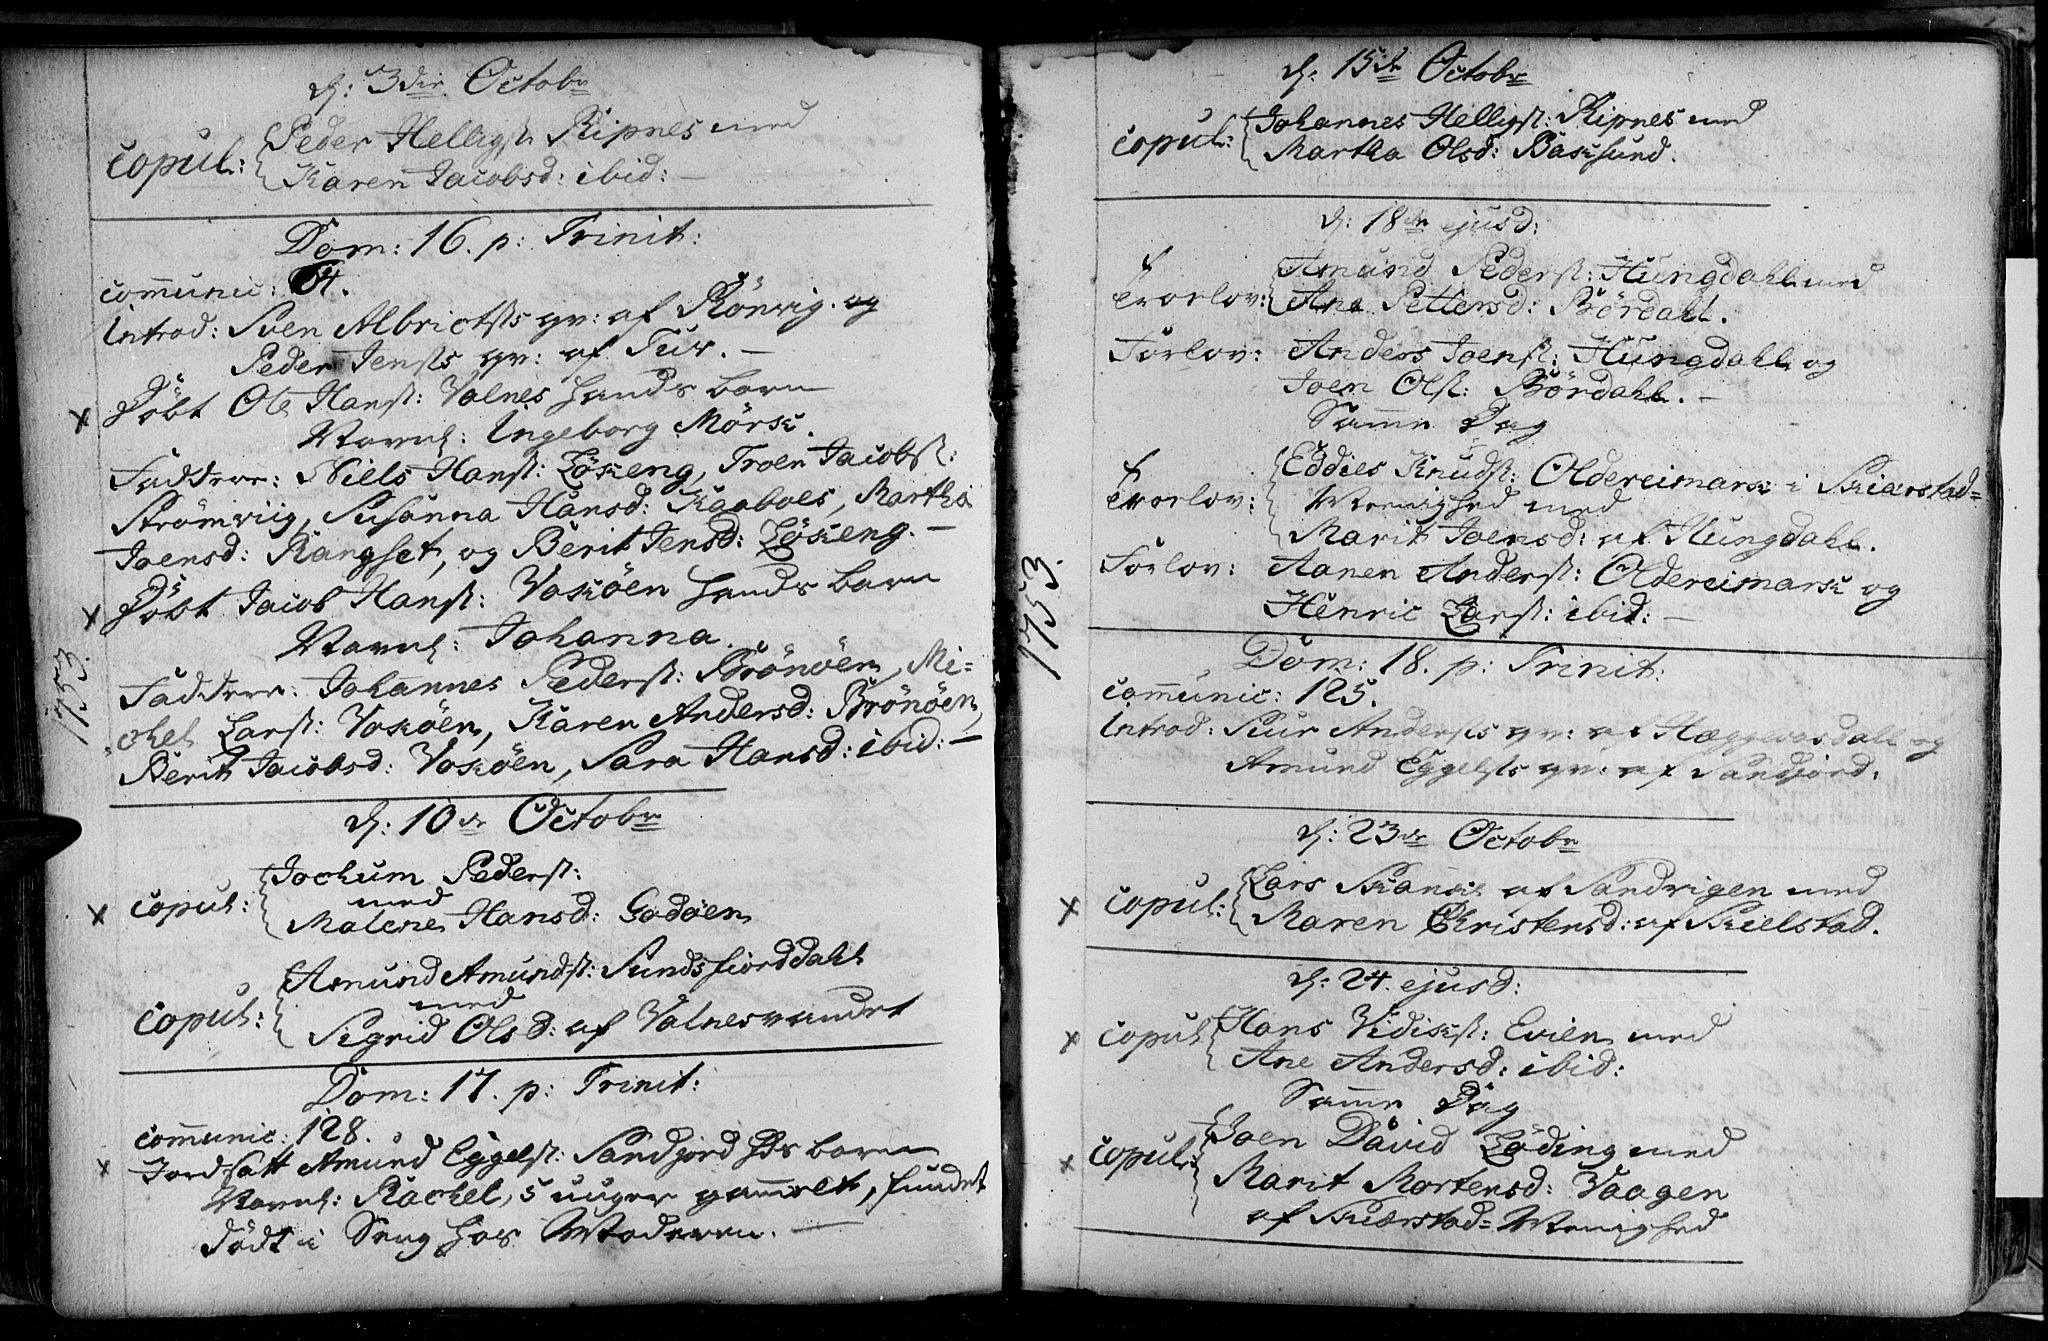 d: 3die Octobr
copul: Peder Helligst: Ripnes med
Karen Jacobsd: ibid: —
Dom: 16. p: Trinit:
communic: 64.
Introd: Sven Albrictsts qv: af Rönvig og
Peder Jensts qv: af Tuv. —
Döbt Ole Hanst: Valnes hands barn
Navnl: Ingeborg Mörk.
Faddere: Niels Hanst: Löseng, Troen Jacobst:
Strömviig, Susanna Hansd: Kaaboes, Martha
Joensd: Rangset, og Berit Jensd: Löseng. —
Döbt Jacob Hanst: Vasköen hands barn
Navnl: Johanna.
Faddere: Johannes Pederst: Brönöen, Mi=
chel Larst: Vasköen, Karen Andersd: Brönöen,
Berit Jacobsd: Vasköen, Sara Hansd: ibid: —
1753.
d: 10de Octobr
copul: Jochum Pederst:
med
Malene Hansd: Godöen
copul: Amund Amundst: Sundsfiorddahl
med
Sigrid Olsd: af Valnesvandet
Dom: 17. p: Trinit:
communic: 128.
Jordsatt Amund Eggelst: Sandjord hds barn
Navnl: Rachel, 5 uuger gammelt, fundet
dödt i Seng hos Moderen. —
d: 15de Octobr
copul: Johannes Helligst: Ripnes med
Martha Olsd: Basksund.
d: 18de ejusd:
Trorlov: Amund Pederst: Hungdahl med
Ane Pettersd: Bördahl.
Forlov: Anders Joenst: Hungdahl og
Joen Olst: Bördahl. —
Samme Dag
Trorlov: Eddies Knudst: Oldereimark i Skiærstad=
Menighed med
Marit Joensd: af Hungdahl.
Forlov: Aanen Anderst: Oldereimark og
Henric Larst: ibid: —
1753.
Dom: 18. p: Trinit:
communic: 125.
Introd: Siur Andersts qv: af Hæggevasdahl og
Amund Eggelsts qv: af Sandjord.
d: 23de Octobr
copul: Lars Skanck af Sandvigen med
Maren Christensd: af Skielstad.
d: 24. ejusd:
copul: Hans Vidikst: Evien med
Ane Andersd: ibid:
Samme Dag
copul: Joen David Löding med
Marit Mortensd: Vaagen
af Skiærstad= Menighed